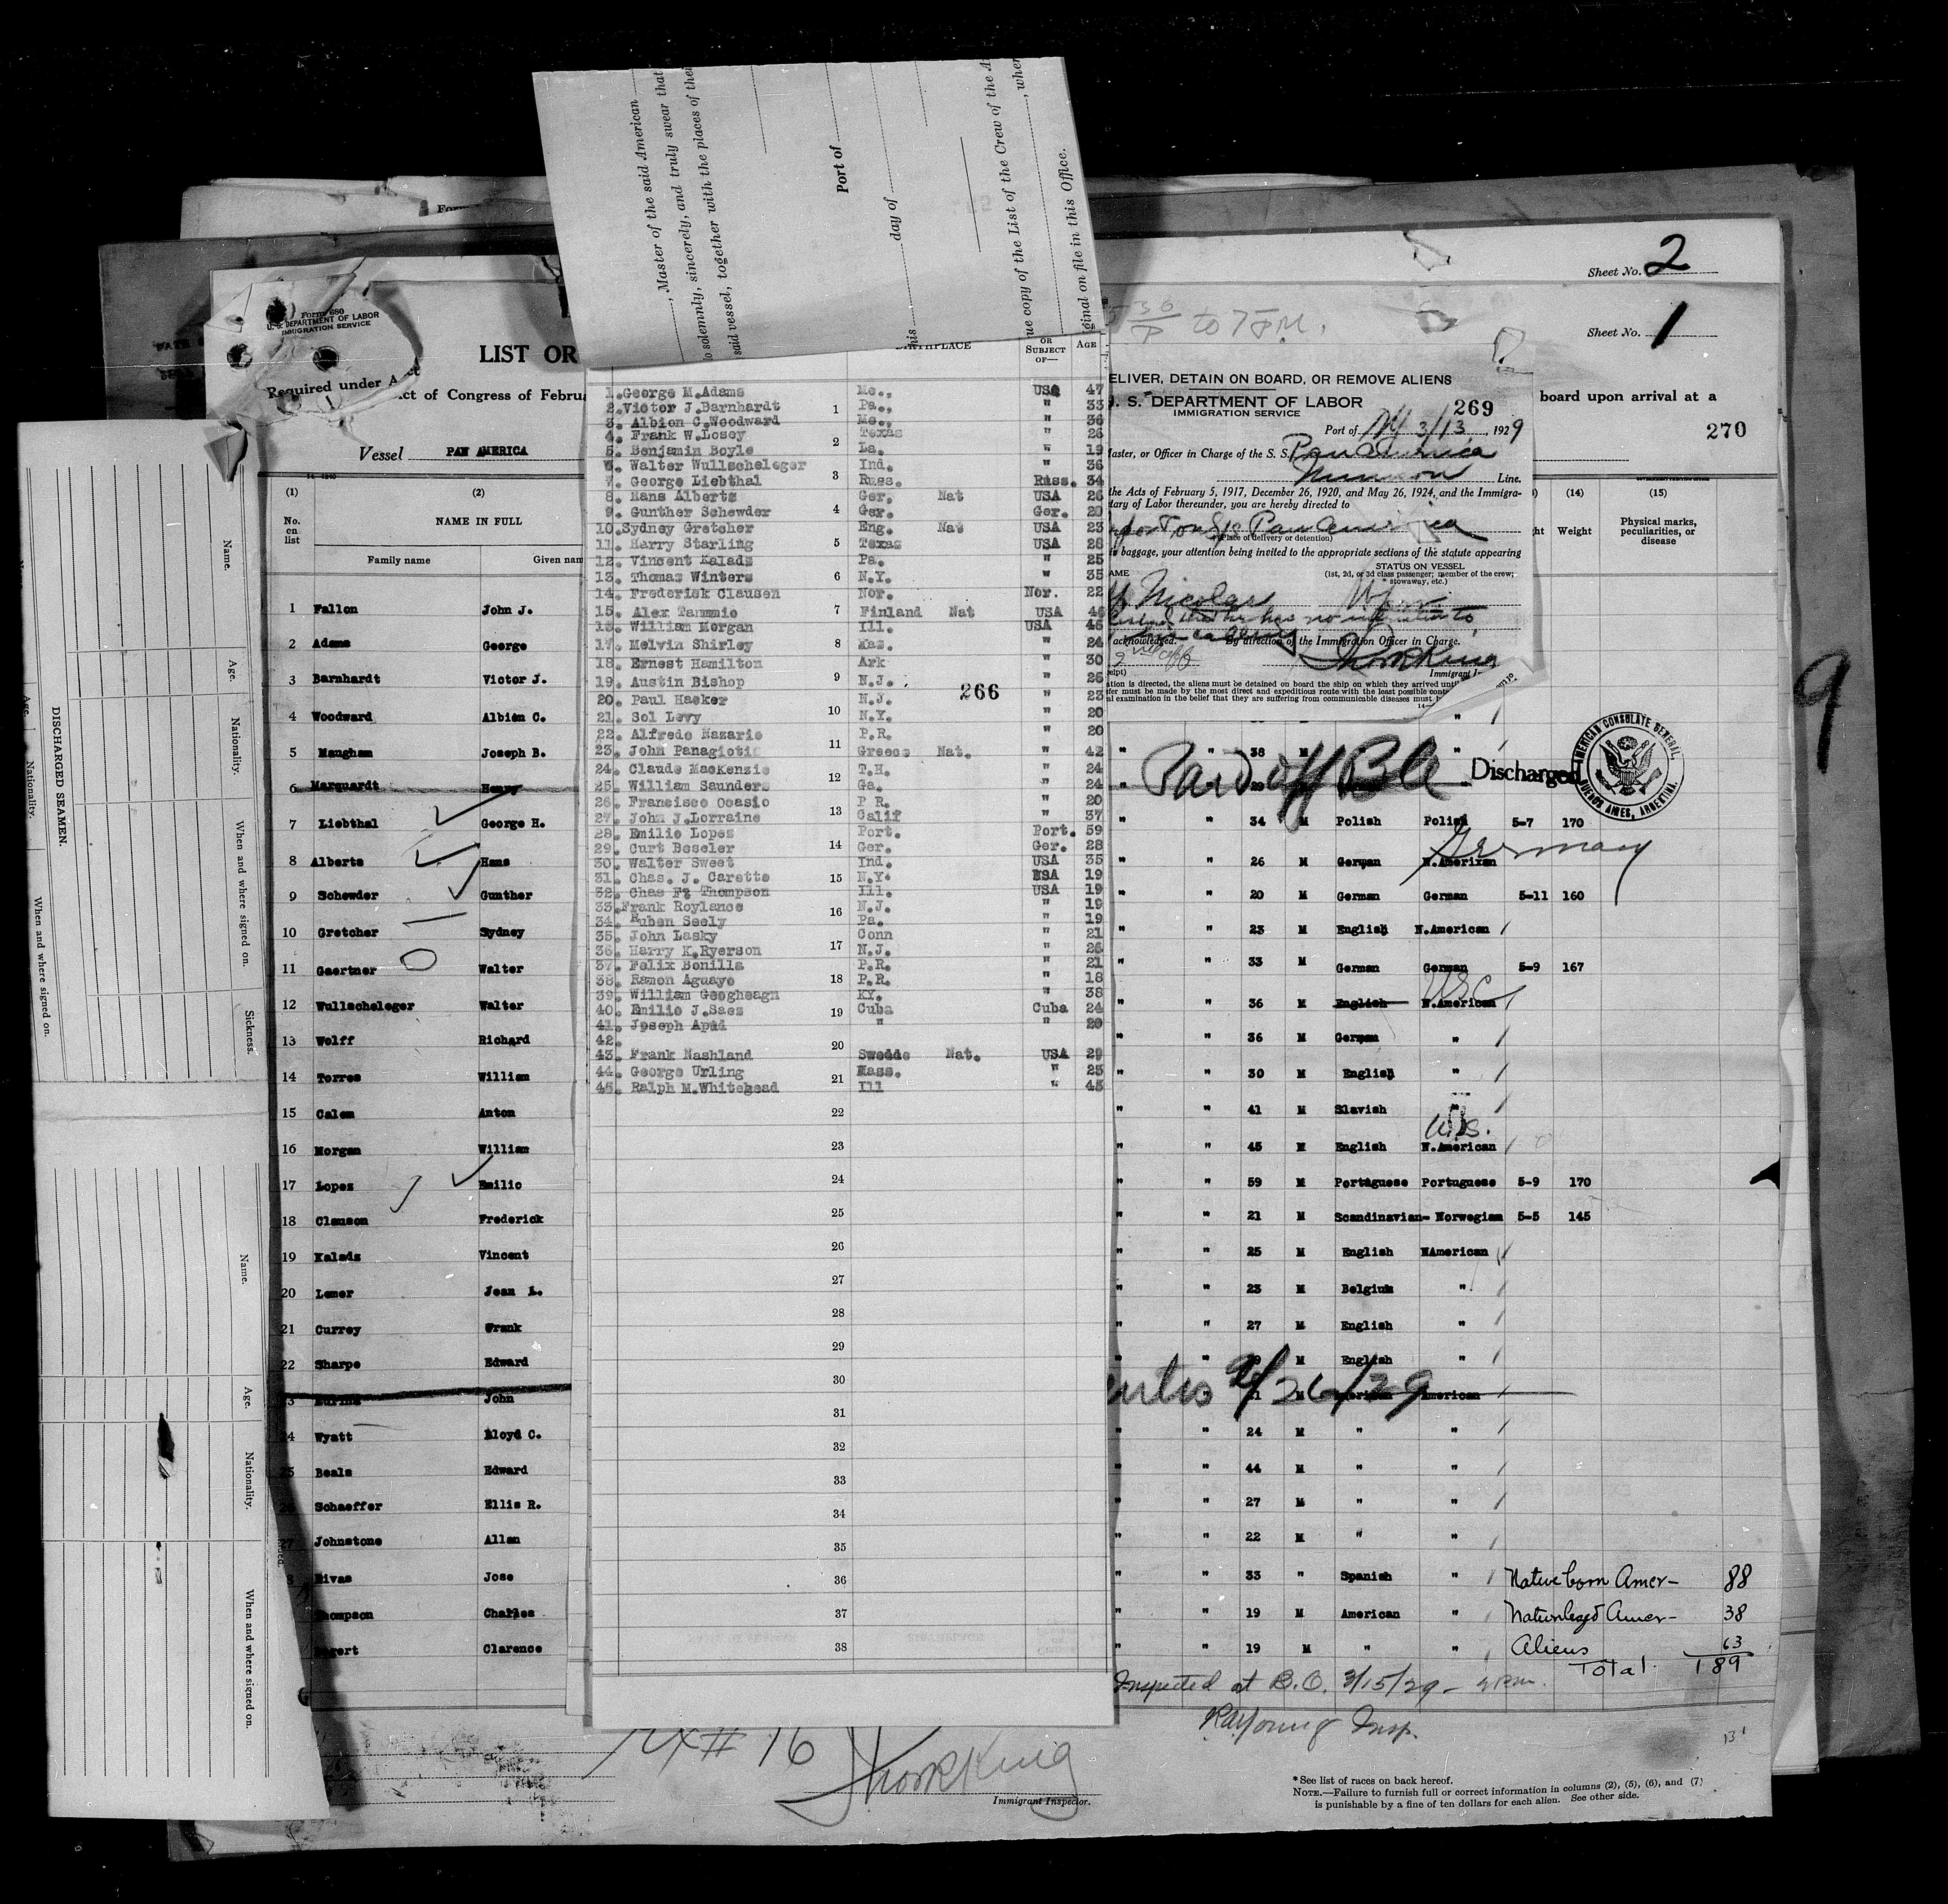 Sheet No. 2
Sheet No. 1
, Master of the said American
solemnly, sincerely, and truly swear that
said vessel, together with the places of thei
Port of
day of
ue copy of the List of the Crew of the A
, wher
ginal on file in this Office.
Form 680
U. S. DEPARTMENT OF LABOR
IMMIGRATION SERVICE
LIST OR
Required under Act
Act of Congress of Februa
board upon arrival at a
270
Vessel PAN AMERICA
(1) (2)
No. on list
NAME IN FULL
Family name Given nam
1 Fallon John J.
2 Adams George
3 Barnhardt Victor J.
4 Woodward Albion C.
5 Maugham Joseph B.
6 Marquardt Henry
7 Liebthal George H.
8 Alberts Hans
9 Schewder Gunther
10 Gretcher Sydney
11 Gaertner Walter
12 Wullscheleger Walter
13 Wolff Richard
14 Torres William
15 Calem Anton
16 Morgan William
17 Lopez Emilio
18 Clauson Frederick
19 Kalads Vincent
20 Lemer Jean L.
21 Currey Frank
22 Sharpe Edward
John
24 Wyatt Lloyd C.
25 Beals Edward
26 Schaeffer Ellis R.
27 Johnstone Allan
Rivas Jose
Thompson Charles
Clarence
BIRTHPLACE
OR SUBJECT OF—
AGE
1. George M. Adams Me., USA 47
2. Victor J. Barnhardt Pa., " 33
3. Albion C. Woodward Me., " 36
4. Frank W. Losey Texas " 26
5. Benjamin Boyle La. " 19
6. Walter Wullscheleger Ind. " 36
7. George Liebthal Russ. Russ. 34
8. Hans Alberts Ger. Nat USA 26
9. Gunther Schewder Ger. Ger. 20
10. Sydney Gretcher Eng. Nat USA 23
11. Harry Starling Texas USA 28
12. Vincent Kalads Pa. " 25
13. Thomas Winters N.Y. " 35
14. Frederick Clausen Nor. Nor. 22
15. Alex Tammnio Finland Nat USA 46
16. William Morgan Ill. USA 46
17. Melvin Shirley Mas. " 24
18. Ernest Hamilton Ark " 30
19. Austin Bishop N.J. " 26
20. Paul Hacker N.J. " 23
21. Sol Levy N.Y. " 20
22. Alfredo Nazario P.R. " 20
23. John Panagiotis Greece Nat. " 42
24. Claude MacKenzie T.H. " 24
25. William Saunders Ga. " 24
26. Francisco Ocasio P R. " 20
27. John J. Lorraine Calif " 37
28. Emilio Lopes Port. Port. 59
29. Curt Beseler Ger. Ger. 28
30. Walter Sweet Ind. USA 35
31. Chas. J. Carette N.Y. USA 19
32. Chas F. Thompson Ill. USA 19
33. Frank Roylance N.J. " 19
34. Ruben Seely Pa. " 19
35. John Lasky Conn " 21
36. Harry K. Ryerson N.J. " 26
37. Felix Bonilla P.R. " 21
38. Ramon Aguayo P.R. " 18
39. William Geogheagn KY. " 38
40. Emilio J. Saez Cuba Cuba 24
41. Joseph Apad " " 20
42.
43. Frank Nashland Swedde Nat. USA 29
44. George Urling Mass. " 25
45. Ralph M. Whitehead Ill " 45
266
1
2
3
4
5
6
7
8
9
10
11
12
13
14
15
16
17
18
19
20
21
22
23
24
25
26
27
28
29
30
31
32
33
34
35
36
37
38
30 to 7 P.M.
ELIVER, DETAIN ON BOARD, OR REMOVE ALIENS
U. S. DEPARTMENT OF LABOR
IMMIGRATION SERVICE
269
Port of NY 3/13, 1929
Master, or Officer in Charge of the S. S. Pan America
Munson Line.
the Acts of February 5, 1917, December 26, 1920, and May 26, 1924, and the Immigra-
tary of Labor thereunder, you are hereby directed to
Pan America
(Place of delivery or detention)
baggage, your attention being invited to the appropriate sections of the statute appearing
NAME STATUS ON VESSEL
(1st, 2d, or 3d class passenger; member of the crew; stowaway, etc.)
Nicolas
that he has no intention to
acknowledged. By direction of the Immigration Officer in Charge.
ation is directed, the aliens must be detained on board the ship on which they arrived unti
fer must be made by the most direct and expeditious route with the least possible
al examination in the belief that they are suffering from communicable diseases must
(14) (15)
Weight
Physical marks, peculiarities, or disease
" " 38 M "
Paid off Discharged
AMERICAN CONSULATE GENERAL, BUENOS AIRES, ARGENTINA.
" " 34 M Polish Polish 5-7 170
Germany
" " 26 M German N.American
" " 20 M German German 5-11 160
" " 23 M English N.American
" " 33 M German German 5-9 167
USC
" " 36 M English N.American
" " 36 M German "
" " 30 M English "
" " 41 M Slavish "
U.S.
" " 45 M English N.American
" " 59 M Portuguese Portuguese 5-9 170
" " 21 M Scandinavian- Norwegian 5-5 145
" " 25 M English NAmerican
" " 23 M Belgium "
" " 27 M English "
" " M English "
2/26/29 American
" " 24 M " "
" " 44 M " "
" " 27 M " "
" " 22 M " "
" " 33 " Spanish "
" " 19 M American "
" " 19 M " "
Native born Amer- 88
Naturalized Amer- 38
Aliens 63
Total. 189
Inspected at B.O. 3/15/29 -
Insp.
# 16
Immigrant Inspector.
*See list of races on back hereof.
NOTE.—Failure to furnish full or correct information in columns (2), (5), (6), and (7)
is punishable by a fine of ten dollars for each alien. See other side.
9
DISCHARGED SEAMEN.
Name.
Age.
Nationality.
When and where signed on.
Sickness.
Name.
Age.
Nationality.
When and where signed on.